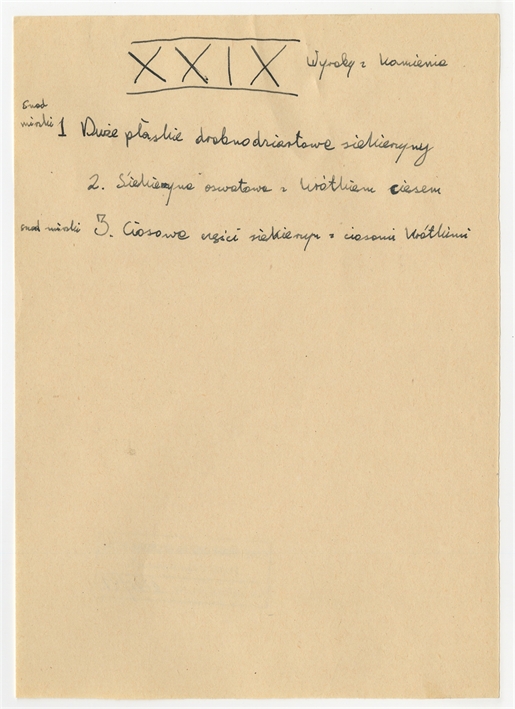 XXIX Wyroby z kamienia
snad
mirski 1 Duże płaskie drobnodziastowe siekieryny
2. Siekieryna oswatowa z krótkiem ciesem
snad mirski 3. Ciosowe części siekieryn z ciosami krótkiemi